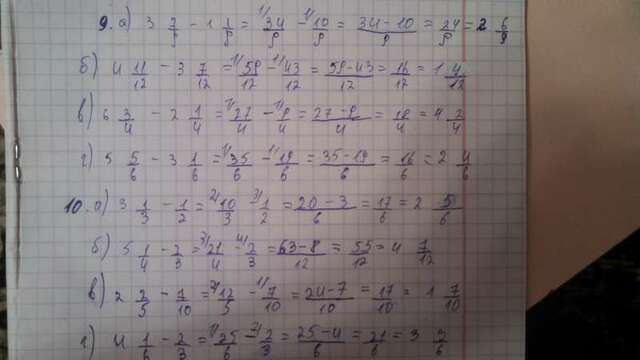 9. а) 3 7/9 - 1 1/9 = 34/9 - 10/9 = 34-10/9 = 24/9 = 2 6/9
б) 4 11/12 - 3 7/12 = 59/12 - 43/12 = 59-43/12 = 16/12 = 1 4/12
в) 6 3/4 - 2 1/4 = 27/4 - 9/4 = 27-9/4 = 18/4 = 4 2/4
г) 5 5/6 - 3 1/6 = 35/6 - 19/6 = 35-19/6 = 16/6 = 2 4/6
10. а) 3 1/3 - 1/2 = 10/3 - 1/2 = 20-3/6 = 17/6 = 2 5/6
б) 5 1/4 - 2/3 = 21/4 - 2/3 = 63-8/12 = 55/12 = 4 7/12
в) 2 2/5 - 7/10 = 12/5 - 7/10 = 24-7/10 = 17/10 = 1 7/10
г) 4 1/6 - 2/3 = 25/6 - 2/3 = 25-4/6 = 21/6 = 3 3/6